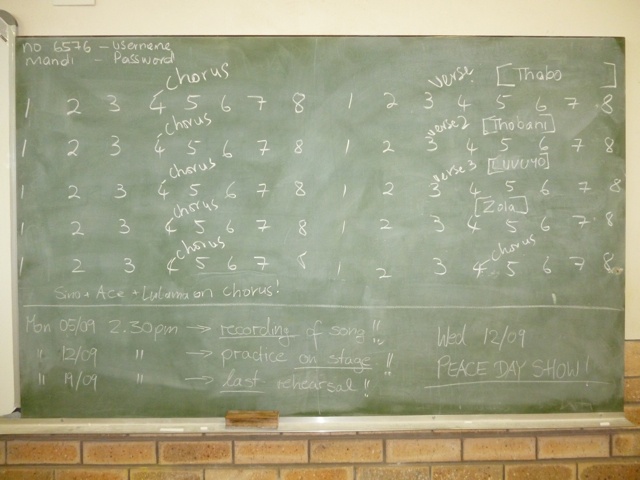 no 6576 - username
mandi - Password
chorus verse [Thabo ]
1 2 3 4 5 6 7 8 1 2 3 4 5 6 7 8
chorus verse 2 [Thobani]
1 2 3 4 5 6 7 8 1 2 3 4 5 6 7 8
chorus verse 3 [Luvuyo]
1 2 3 4 5 6 7 8 1 2 3 4 5 6 7 8
chorus [Zola]
1 2 3 4 5 6 7 8 1 2 3 4 5 6 7 8
chorus chorus
1 2 3 4 5 6 7 8 1 2 3 4 5 6 7 8
Sim + Ace + Lulama on chorus!
Mon 05/09 2.30pm → recording of song!!
" 12/09 " → practice on stage!!
" 19/09 " → last rehearsal!!
Wed 12/09
PEACE DAY SHOW!